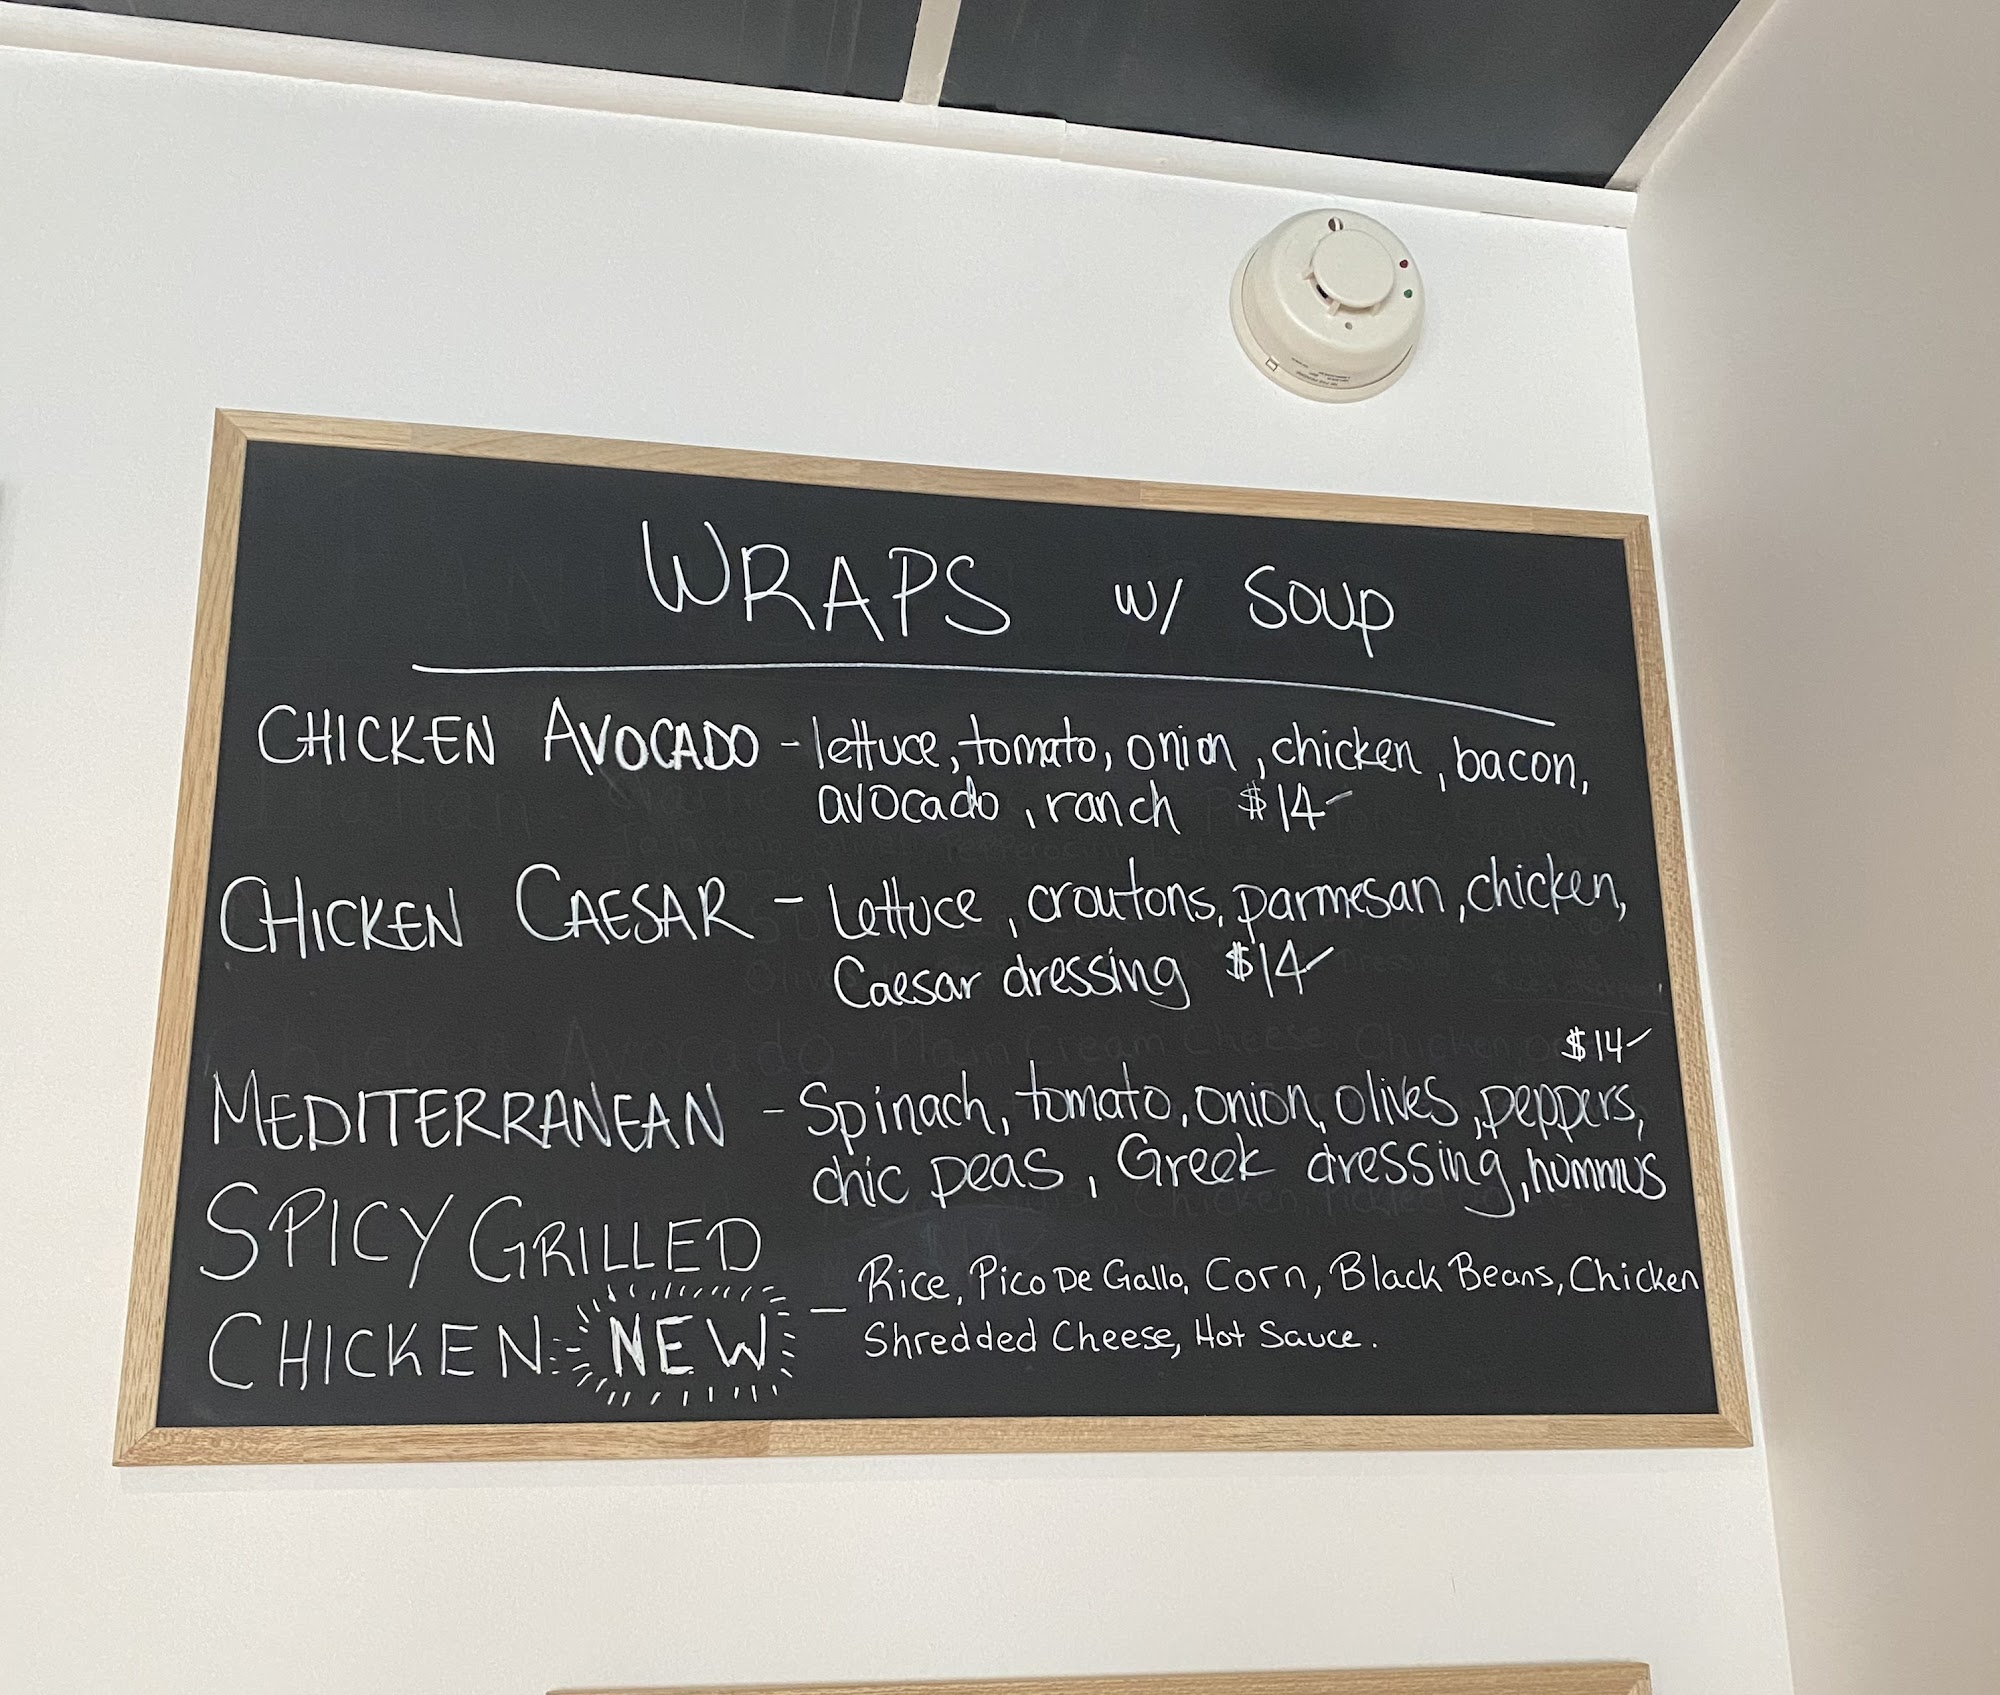 WRAPS w/ Soup
CHICKEN AVOCADO - lettuce, tomato, onion, chicken, bacon,
avocado, ranch $14-
CHICKEN CAESAR - Lettuce, croutons, parmesan, chicken,
Caesar dressing $14-
$14-
MEDITERRANEAN - Spinach, tomato, onion, olives, peppers,
chic peas, Greek dressing, hummus
SPICY GRILLED
CHICKEN NEW - Rice, Pico De Gallo, Corn, Black Beans, Chicken
Shredded Cheese, Hot Sauce.